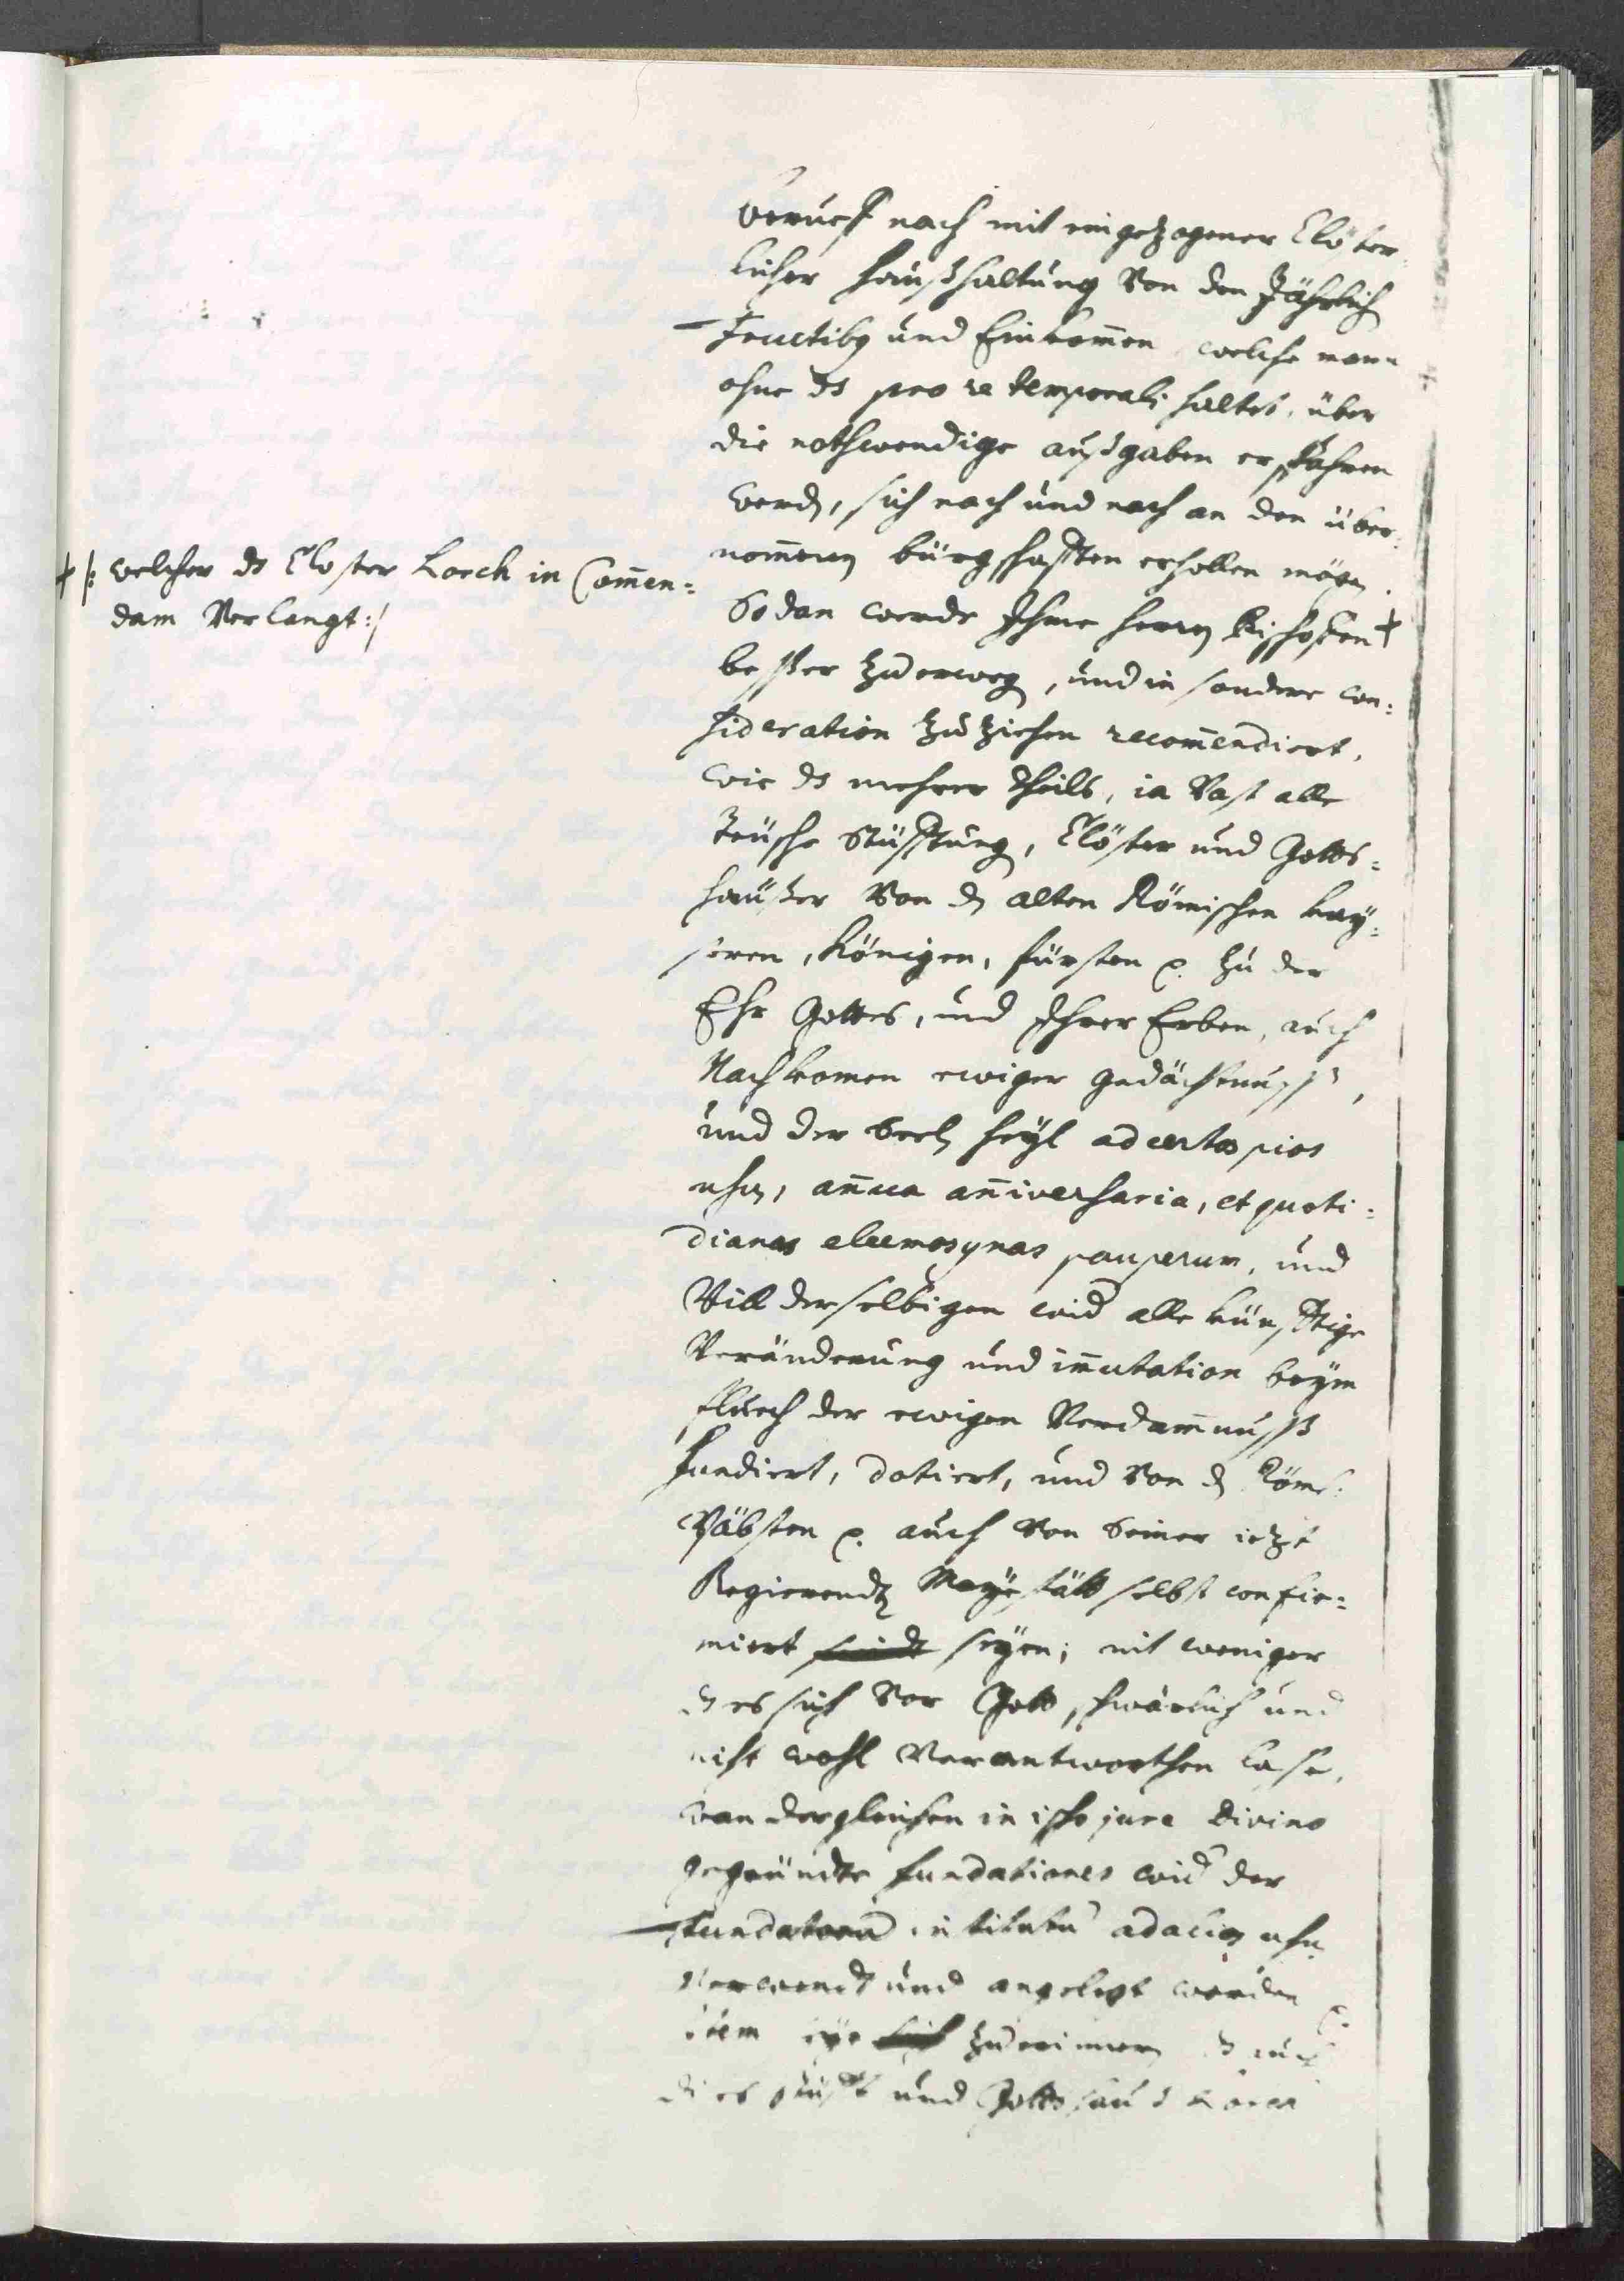 nach mit eingezogener Clöster¬
licher Haußhaltung Von den Jährlich
Fructibus und Einkommen welche man
ohne ds pro re temporali haltet, über
die nothwendige außgaben ersparen
werdt, sich nach und nach an den über¬
nommenen bürgschafften erhollen möge.
Sodan werde Ihme Herrn Bischoffen +
+ /: welcher ds Closter Lorch in Com̄en=
dam Verlangt :/
besser zuerweg, und in sondere con=
sideration zu ziehen recom̄endiert,
wie ds mehrer theils, ia Vast alle
Teusche Stüfftung, Clöster und Gotts=
heüßer Von dn alten Römischen Kay=
seren, Königen, Fürsten p. zu der
Ehr Gottes, und Ihrer Erben, auch
Nachkomen ewiger gedächtnuss,
und der Seeln heyl ad certos pios
usus, an̄ua an̄iversaria, et quoti=
dianas eleemosynas pauperum, und
Vill derselbigen wid alle künfftige
Veränderung und im̄utation beym
fluech der ewigen Verdam̄nuß
fundiert, dotiert, und Von dn Röm:
Päbsten p. auch Von Seiner ietzt
Regierendn Mayestätt selbst confir=
miert seindt seyen; nit weniger
ds es sich Vor Gott schwärlich und
nicht wohl Verantworthen lasse,
wan dergleichen in ipso jure Divino
gegründte fundationes wid der
fundatorum ad alios usus
Verwendt und angelegt werden p.
item zuerinnern ds auch
dies stüfft und Gottshaus Lorch